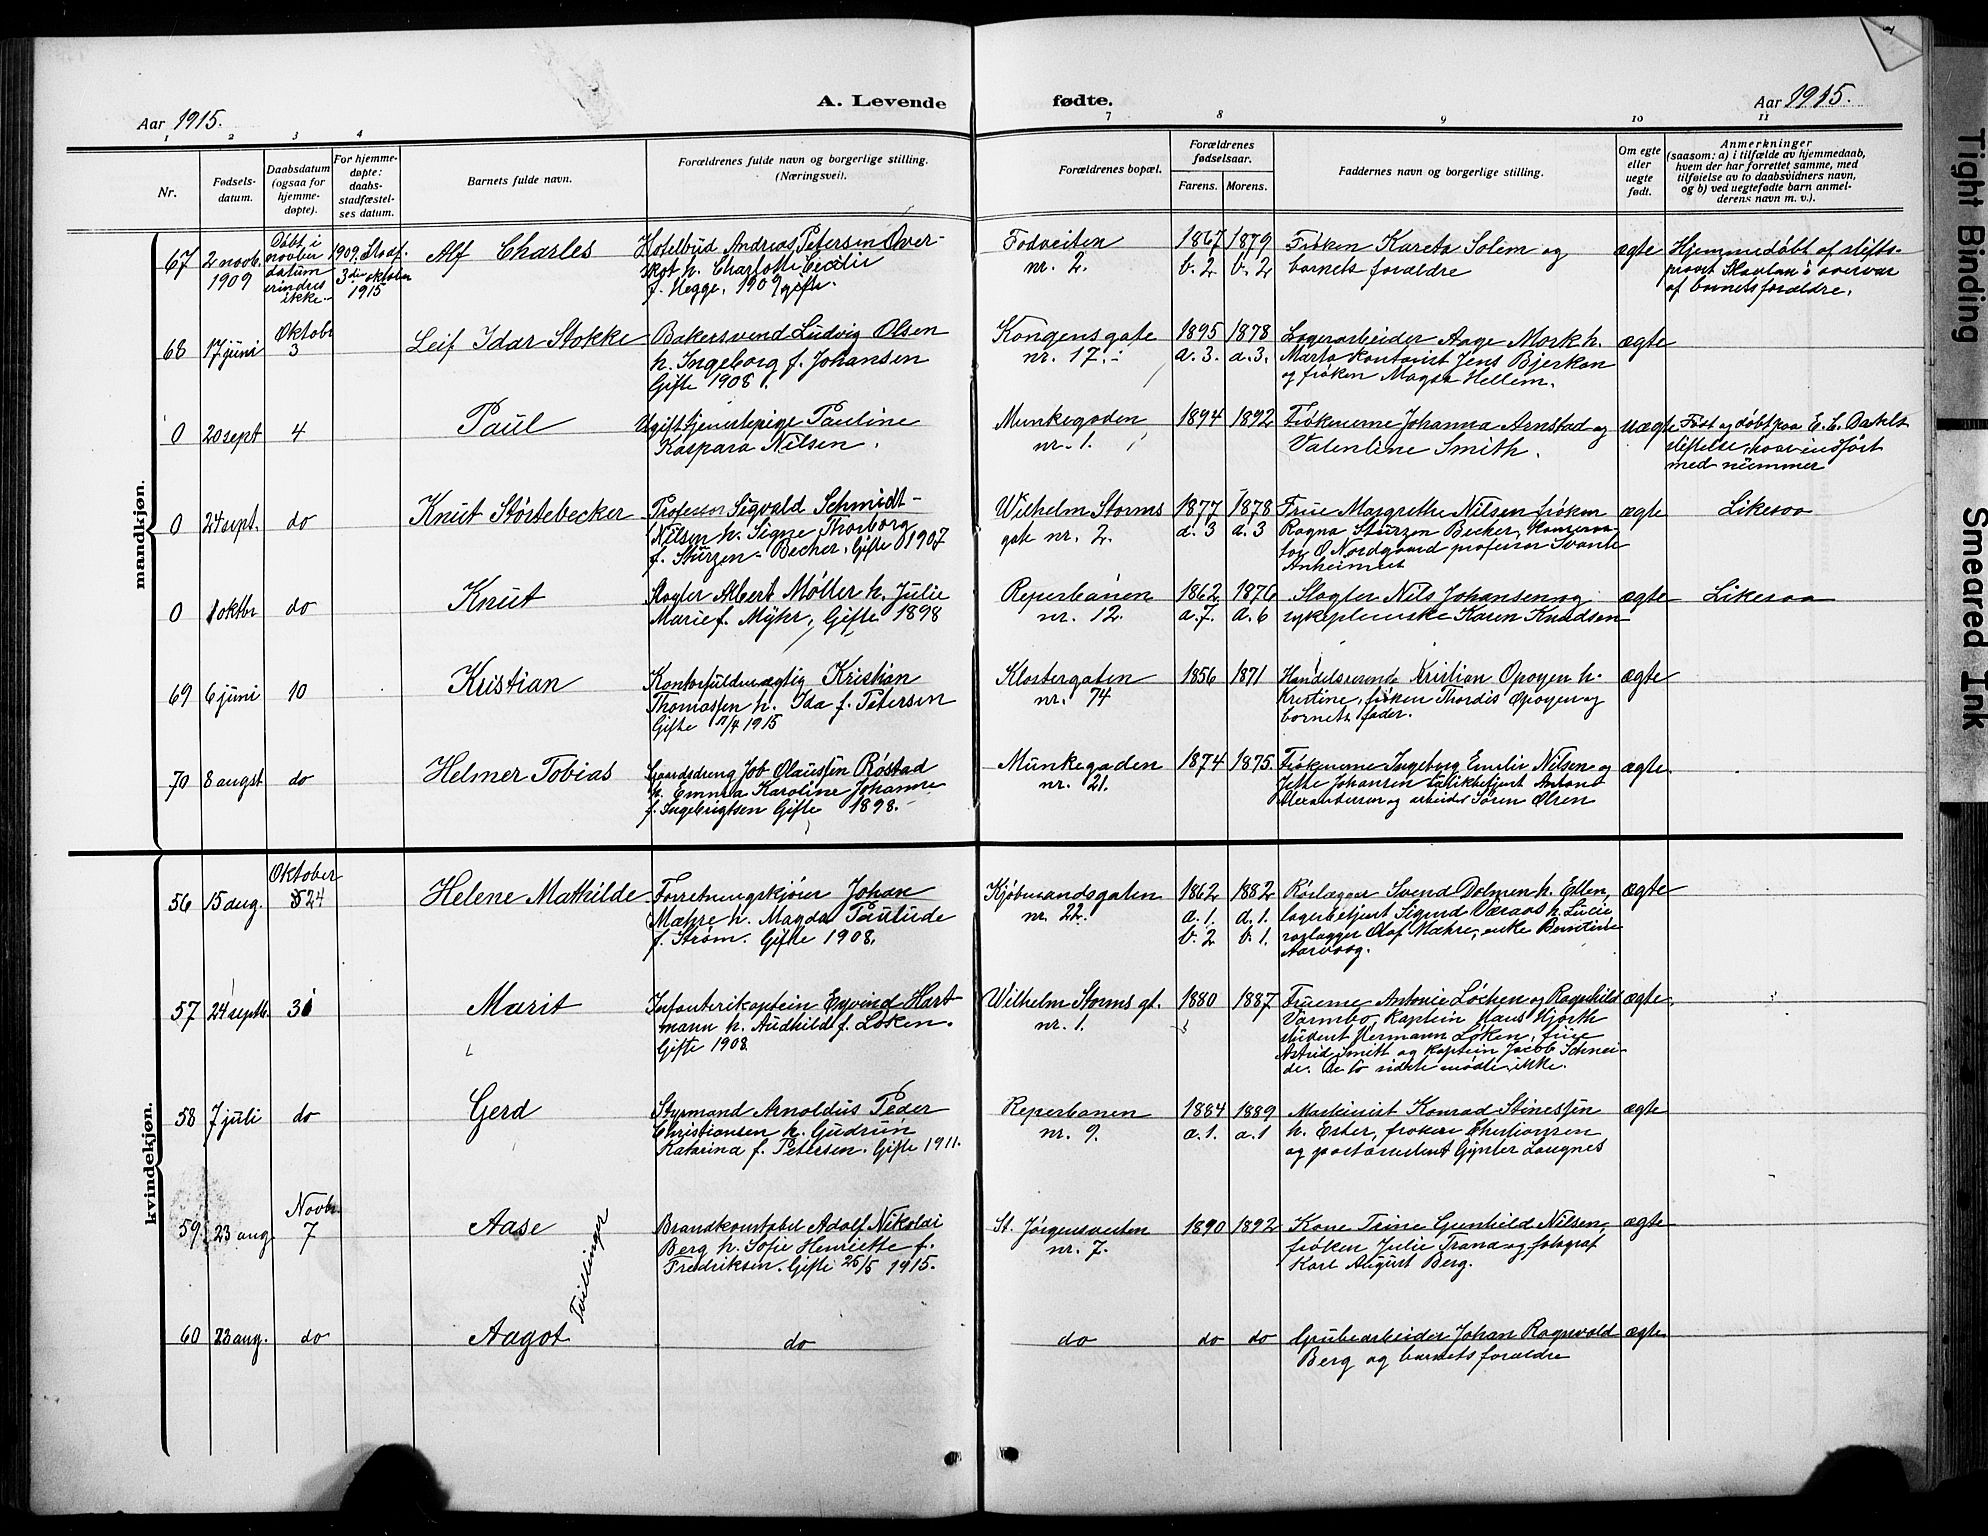 A. Levende
fødte.
Aar 1915.
Aar 1915.
1 2 3 4
7 8 9 10 11
Nr.
Fødsels-
datum.
Daabsdatum
(ogsaa for
hjemme-
døpte).
For hjemme-
døpte:
daabs-
stadfæstel-
ses datum.
Barnets fulde navn.
Forældrenes fulde navn og borgerlige stilling.
(Næringsvei).
Forældrenes bopæl.
Forældrenes
fødselsaar.
Farens. Morens.
Faddernes navn og borgerlige stilling.
Om egte
eller
uegte
født.
Anmerkninger
(saasom: a) i tilfælde av hjemmedaab,
hvem der har forrettet samme, med
tilføielse av to daabsvidners navn,
og b) ved uegtefødte barn anmel-
derens navn m. v.).
mandkjøn.
67
2 novb.
1909
Døbt i
novber
datum
erindres
ikke.
1909. Stadf.
3die oktober
1915
Alf Charles
Hotelbud Andreas Petersen Over-
skot h. Charlotte Cecilie
f. Hegge. 1909 gifte.
Fodveiten
nr. 2.
1867
b. 2
1879
b. 2
Frøken Kareta Solem og
barnets forældre
ægte
Hjemmedøbt af stifts-
provst
af barnets forældre.
68
17 juni
Oktobr
3
Leif Idar Stokke
Bakersvend Ludvig Olsen
h. Ingeborg f. Johansen
Gifte 1908.
Kongensgate
nr. 17.
1895
a. 3.
1878
a. 3.
Lagerarbeider Aage Mork h.
Marta kontorist Jens Bjerkan
og frøken Magda Hellem.
ægte
0
20 sept
4
Paul
Ugift tjenestepige Pauline
Kaspara Nilsen.
Munkegaden
nr. 1.
1894
1892
Frøknerne Johanna Arnstad og
Valentine Smith.
uægte
Født og døbt paa E. C. Dahls
stiftelse, hvor indført
med nummer
0
24 sept.
do
Knut Störtebecker
Professor Sigvald Schmidt-
Nilsen h. Signe Thorborg
f. Sturzen-Becher. Gifte 1907
Wilhelm Storms
gate nr. 2.
1877
a. 3
1878
a. 3
Frue Margrethe Nilsen frøken
Ragna Stürzen Becker,
O. Nordgaard professor Svante
ægte
Likesaa
0
1 oktbr
do
Knut
Slagter Albert Møller h. Julie
Marie f. Myhr, Gifte 1898
Reperbanen
nr. 12.
1862
a. 7.
1876
a. 6
Slagter Nils Johansen og
sykepleierske Karen Knudsen
ægte
Likesaa
69
6 juni
10
Kristian
Kontorfuldmægtig Kristian
Thomassen h. Ida f. Petersen
Gifte 17/4 1915
Klostergaten
nr. 74
1856
1871
Handelsreisende Kristian Opøyen h.
Kristine, frøken Thordis Opøyen og
barnets fader.
ægte
70
8 augst
do
Helmer Tobias
Gaardsdreng Job Olaussen Røstad
h. Emma Karoline Johanne
f. Ingebrigtsen Gifte 1898.
Munkegaden
nr. 21.
1874
1875.
Frøknerne Ingeborg Emelie Nilsen og
Jette Johansen Anton
Alexandersen og arbeider Søren Olsen
ægte.
kvindekjøn.
56
15 aug.
Oktober
24
Helene Mathilde
Forretningskjører Johan
Mæhre h. Magda Paulude
f. Strøm. Gifte 1908.
Kjøbmandsgaten
nr. 22.
1862
a. 1.
b. 2
1882
a. 1.
b. 1.
Rørlægger Svend Dolmen h. Ellen,
lagerbetjent Sigurd Væraas h. Lucie
rørlægger Olaf Mæhre, enke Berntine
Aarvaag.
ægte
57
24 septb.
31
Marit
Infanterikaptein Eyvind Hart-
mann h. Audhild f. Løken.
Gifte 1908
Wilhelm Storms gt.
nr. 1.
1880
1887
Fruerne Antonie Løchen og Ragnhild
Varmbo, kaptein Hans Hjorth
student Hermann Løken, frue
Astrid Smitt og kaptein Jacob Schnei-
der. De to sidste mødte ikke.
ægte.
58
7 juli
do
Gerd
Styrmand Arnoldus Peder
Christiansen h. Gudrun
Katarina f. Petersen. Gifte 1911.
Reperbanen
nr. 9.
1884
a. 1.
1889
a. 1
Maskinist Konrad Stinessen
h. Ester, frøken Christiansen
og postassistent Gynter Langnes
ægte
59
23 aug
Novbr.
7
Aase
Tvillinger
Brandkonstabel Adolf Nikolai
Berg h. Sofie Henriette f.
Fredriksen. Gifte 25/5 1915.
St. Jørgensveiten
nr. 7.
1890
1892
Kone Trine Gunhild Nilsen,
frøken Julie Trana og fotograf
Karl August Berg.
ægte
60
23 aug.
do
Aagot
do
do
do
do
Grubearbeider Johan Ragnvald
Berg og barnets forældre
ægte
Tight Binding
Smeared Ink